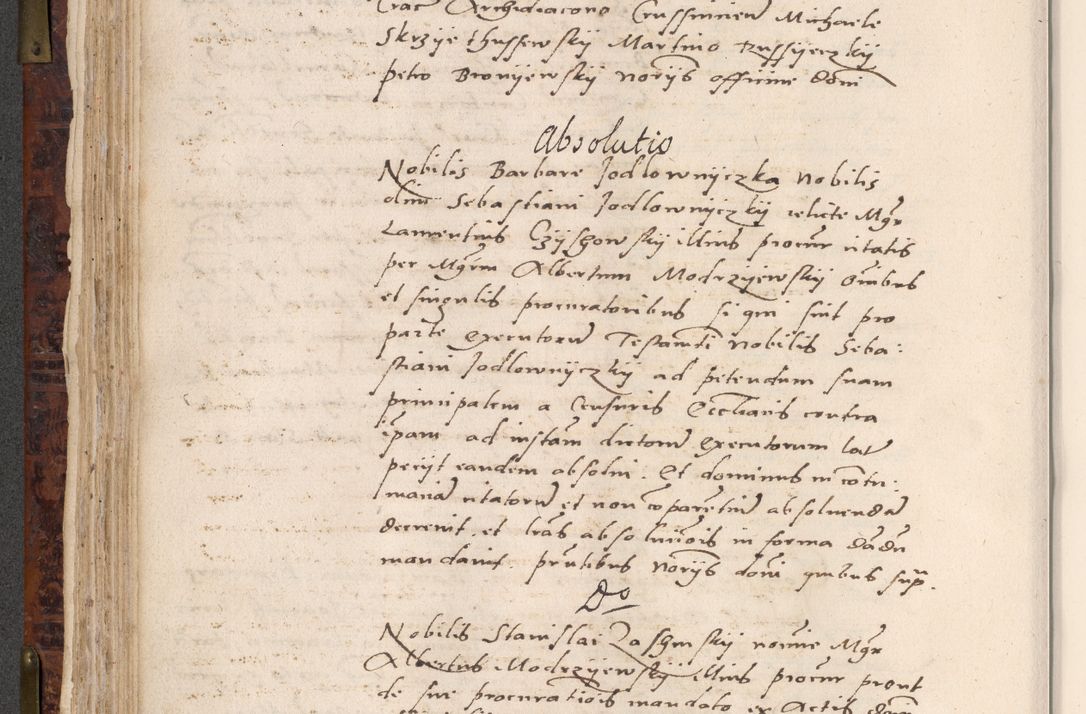 Crac Archidiacono Crussvicien Michaele
Skrzyethussewskij Martino Russyeczkij
petro Bronyewskij Noriis officine domi
Absolutio
Nobilis Barbare Jodlownyczka Nobilis
olim Sebastiani Jodlownyczkij relicte Mgr
Laurentius Czyszowskij illius procur citatis
per Mgrm Albertum Modrzyewskij omibus
et singulis procuratoribus si qui sint pro
parte executorum Testamti Nobilis Seba:
stiani Jodlownyczkij ad petendum suam
principalem a Censuris Ecctiacis contra
ipam ad instam dictorum executorum lat
peciyt eandem absolui. Et dominus in contu:
maciam citatorum et non coparetium absoluendam
decrevit, et lras absolucois in forma dadu
mandavit prntibus Noriis domi quibus supr.
Do
Nobilis Stanislai nomine Mgr
Albertus Modrzyewskij illius procur prout
de sue procuratiois mandato ex Actis